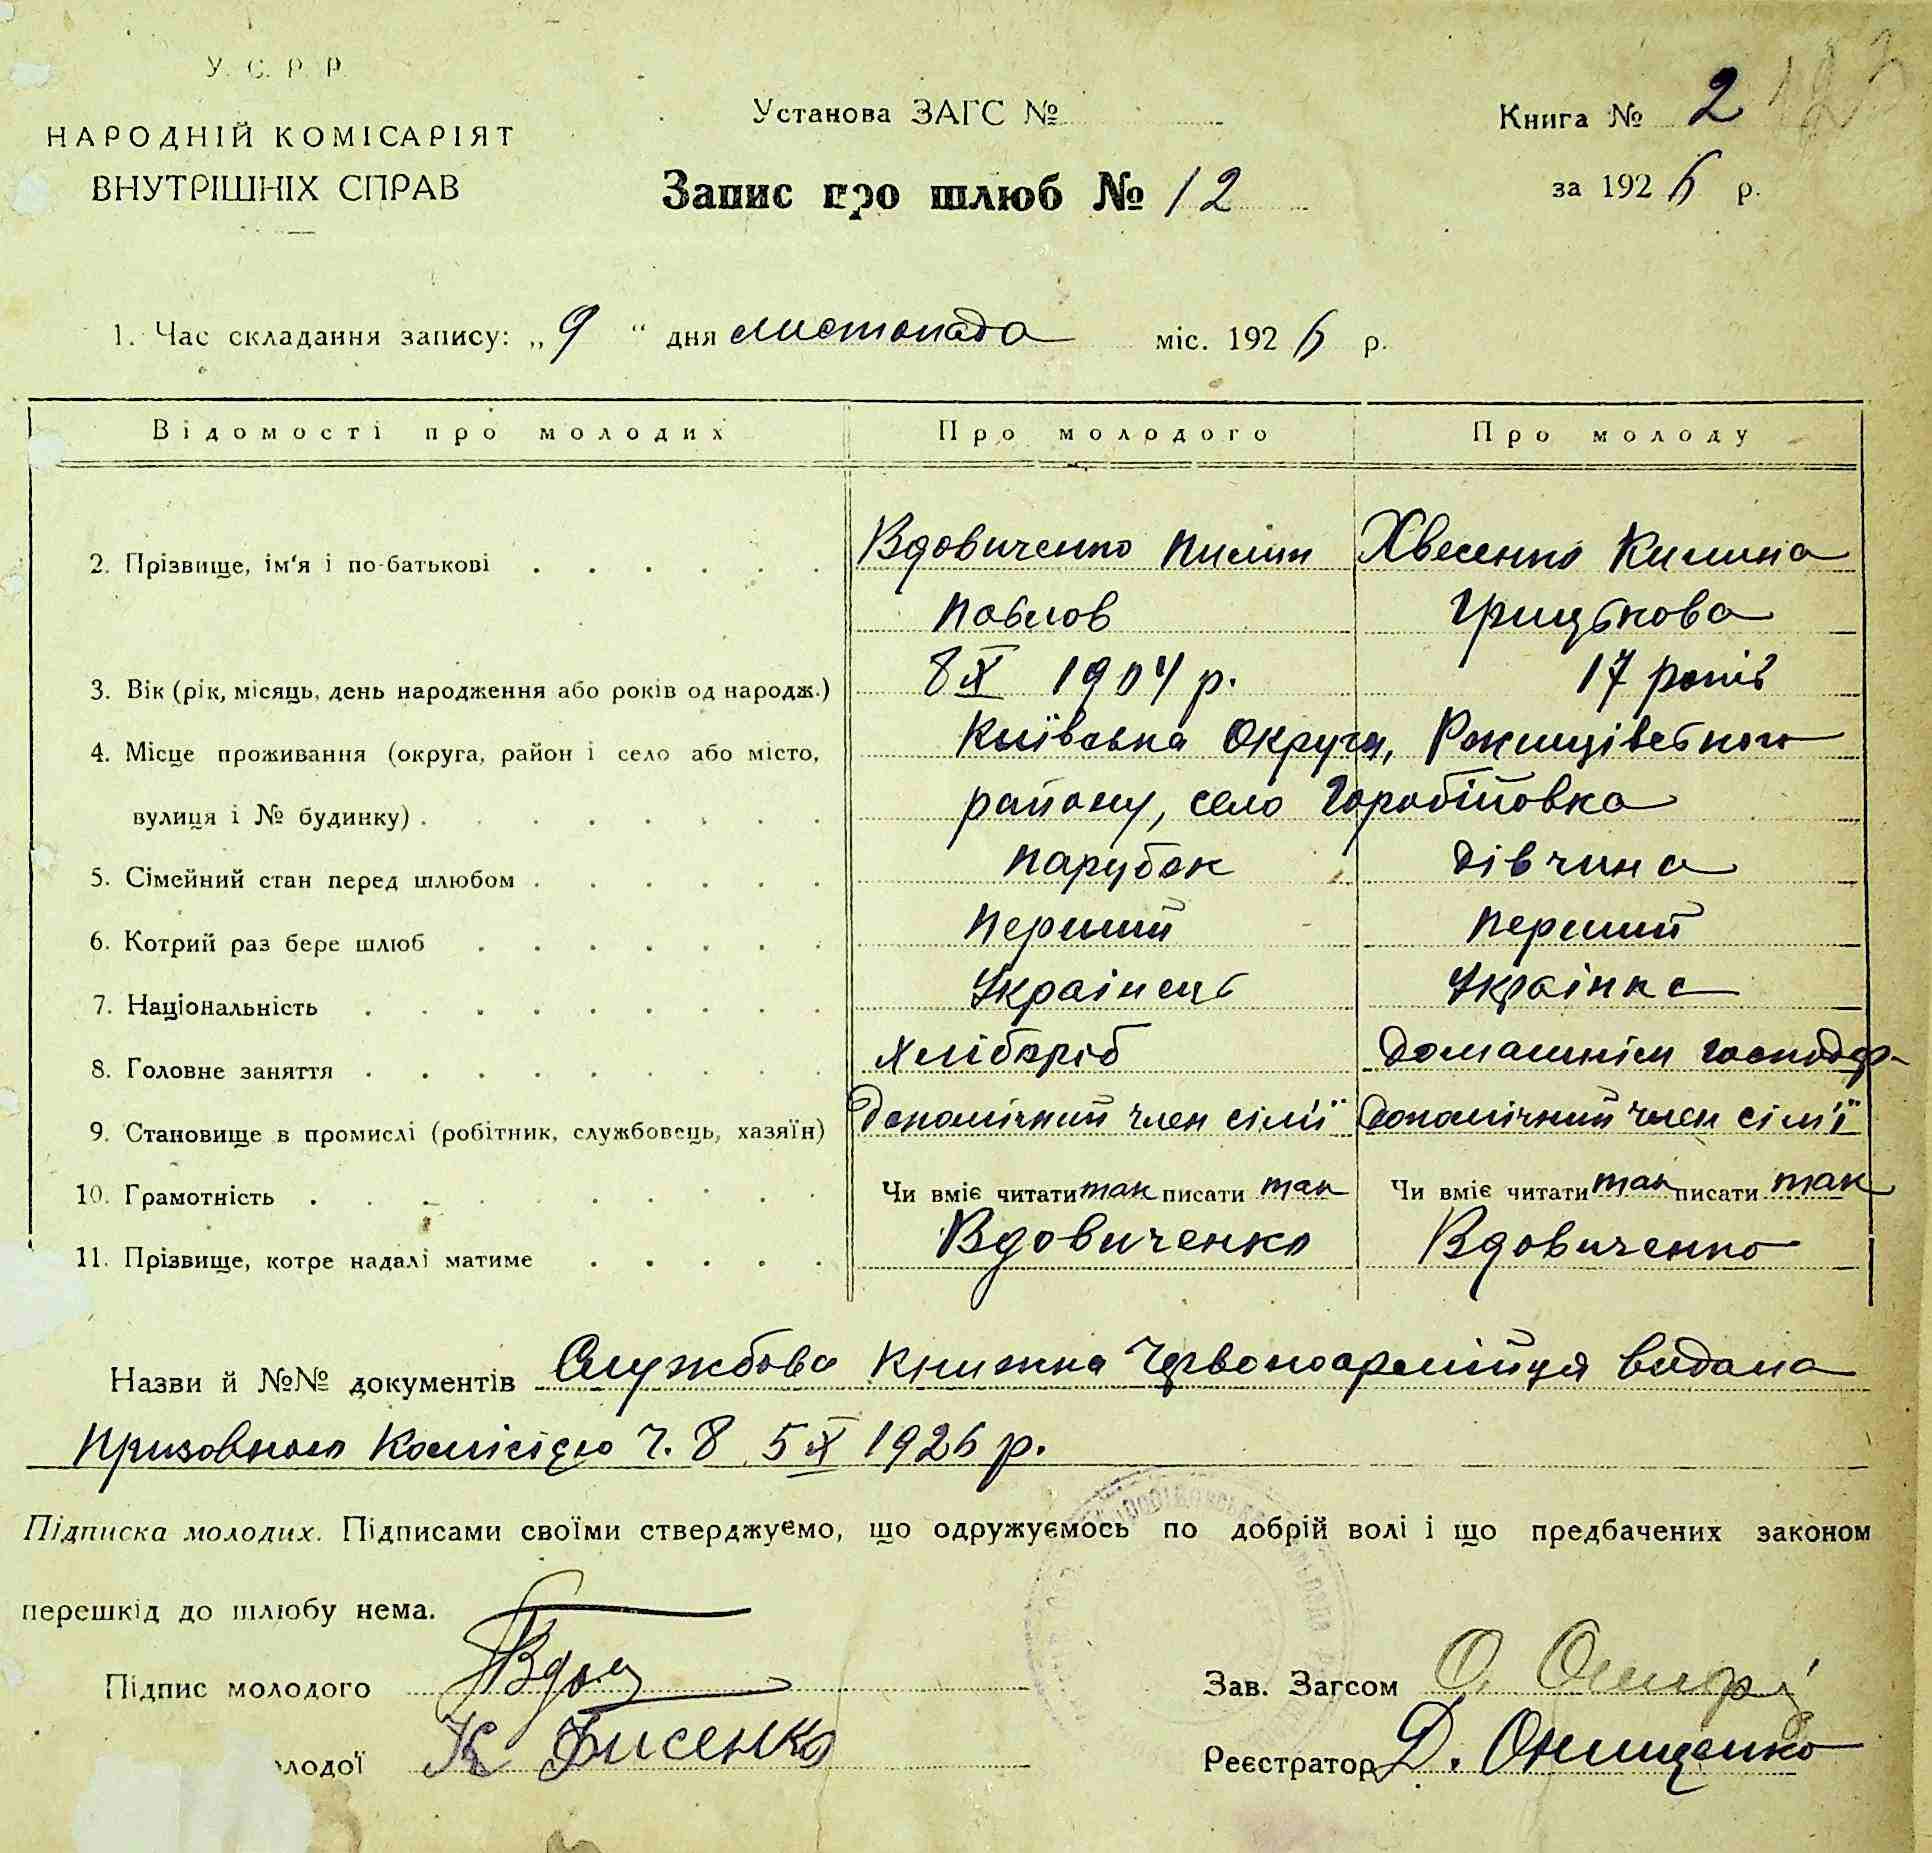 У. С. Р. Р.
НАРОДНІЙ КОМІСАРІЯТ
ВНУТРІШНІХ СПРАВ
Установа ЗАГС №
Запис про шлюб № 12
Книга № 2
за 1926 р.
1. Час складання запису: „9“ дня листопада міс. 1926 р.
Відомості про молодих Про молодого Про молоду
2. Прізвище, ім'я і по-батькові Вдовиченко Пилип Хвесенко Килина
Павлов Грицькова
3. Вік (рік, місяць, день народження або років од народж.) 8 X 1904 р. 17 років
4. Місце проживання (округа, район і село або місто, Київська Округа, Рокицівського
вулиця і № будинку) району, село Горобіївка
5. Сімейний стан перед шлюбом парубок дівчина
6. Котрий раз бере шлюб перший перший
7. Національність Українець Українка
8. Головне заняття хлібороб домашнім господар-
9. Становище в промислі (робітник, службовець, хазяїн) допомічний член сім'ї допомічний член сім'ї
10. Грамотність Чи вміє читати так писати так Чи вміє читати так писати так
11. Прізвище, котре надалі матиме Вдовиченко Вдовиченко
Назви й №№ документів Службова книжка Червоноармійця видана
Призовною Комісією ч. 8 5 X 1926 р.
Підписка молодих. Підписами своїми стверджуємо, що одружуємось по добрій волі і що предбачених законом
перешкід до шлюбу нема.
Підпис молодого Вдов
Зав. Загсом О.
лодої К Хвисенко
Реєстратор Д. Онищенко